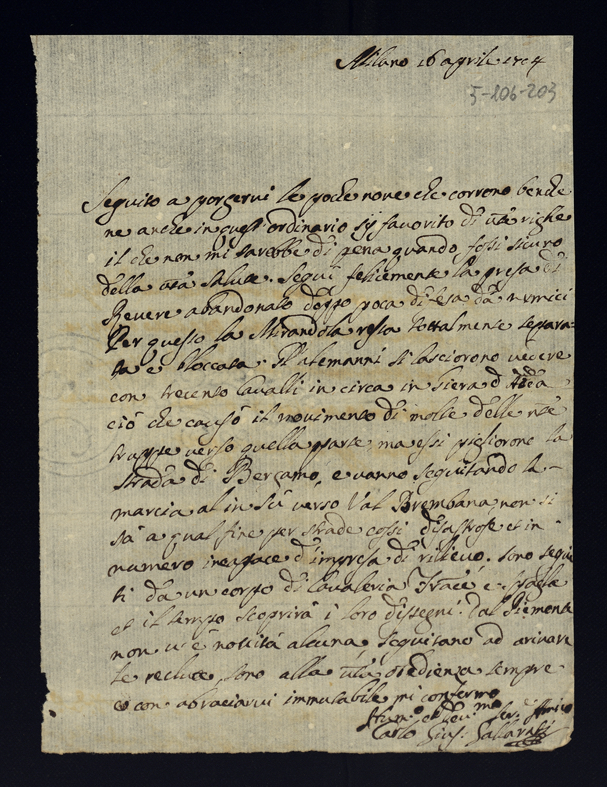 Milano 16 aprile 1704
5-206-203
Seguito a porgervi le poche nove che corrono benche
ne anche in quest ordinario sij favorito di vr̃e righe
il che non mi sarebbe di pena quando fossi sicuro
della vr̃a salute. Seguì felicemente la presa di
Revere abandonato doppo poca difesa da nemici
Per questo la Mirandola resta totalmente separa-
ta e bloccata. Gl'alemanni si lasciorono vedere
con trecento Cavalli in circa in Giera d'Adda
ciò che causò il movimento di molte delle nr̃e
truppe verso quella parte, ma essi pigliorono la
strada di Bergamo, e vanno seguitando la
marcia al in sù verso Val Brembana non si
sà a qual fine per strade cossi disastrose et in
numero incapace d'impresa di rilievo. Sono segui-
ti da un corpo di Cavaleria e
et il tempo scoprirà i loro dissegni. Dal Piemonte
non v'è novità alcuna seguitano ad arivare
le reclute, sono alla vr̃a obedienza sempre
e con abraciarvi immutabile mi confermo
Amico
Carlo Gius. Gallarati